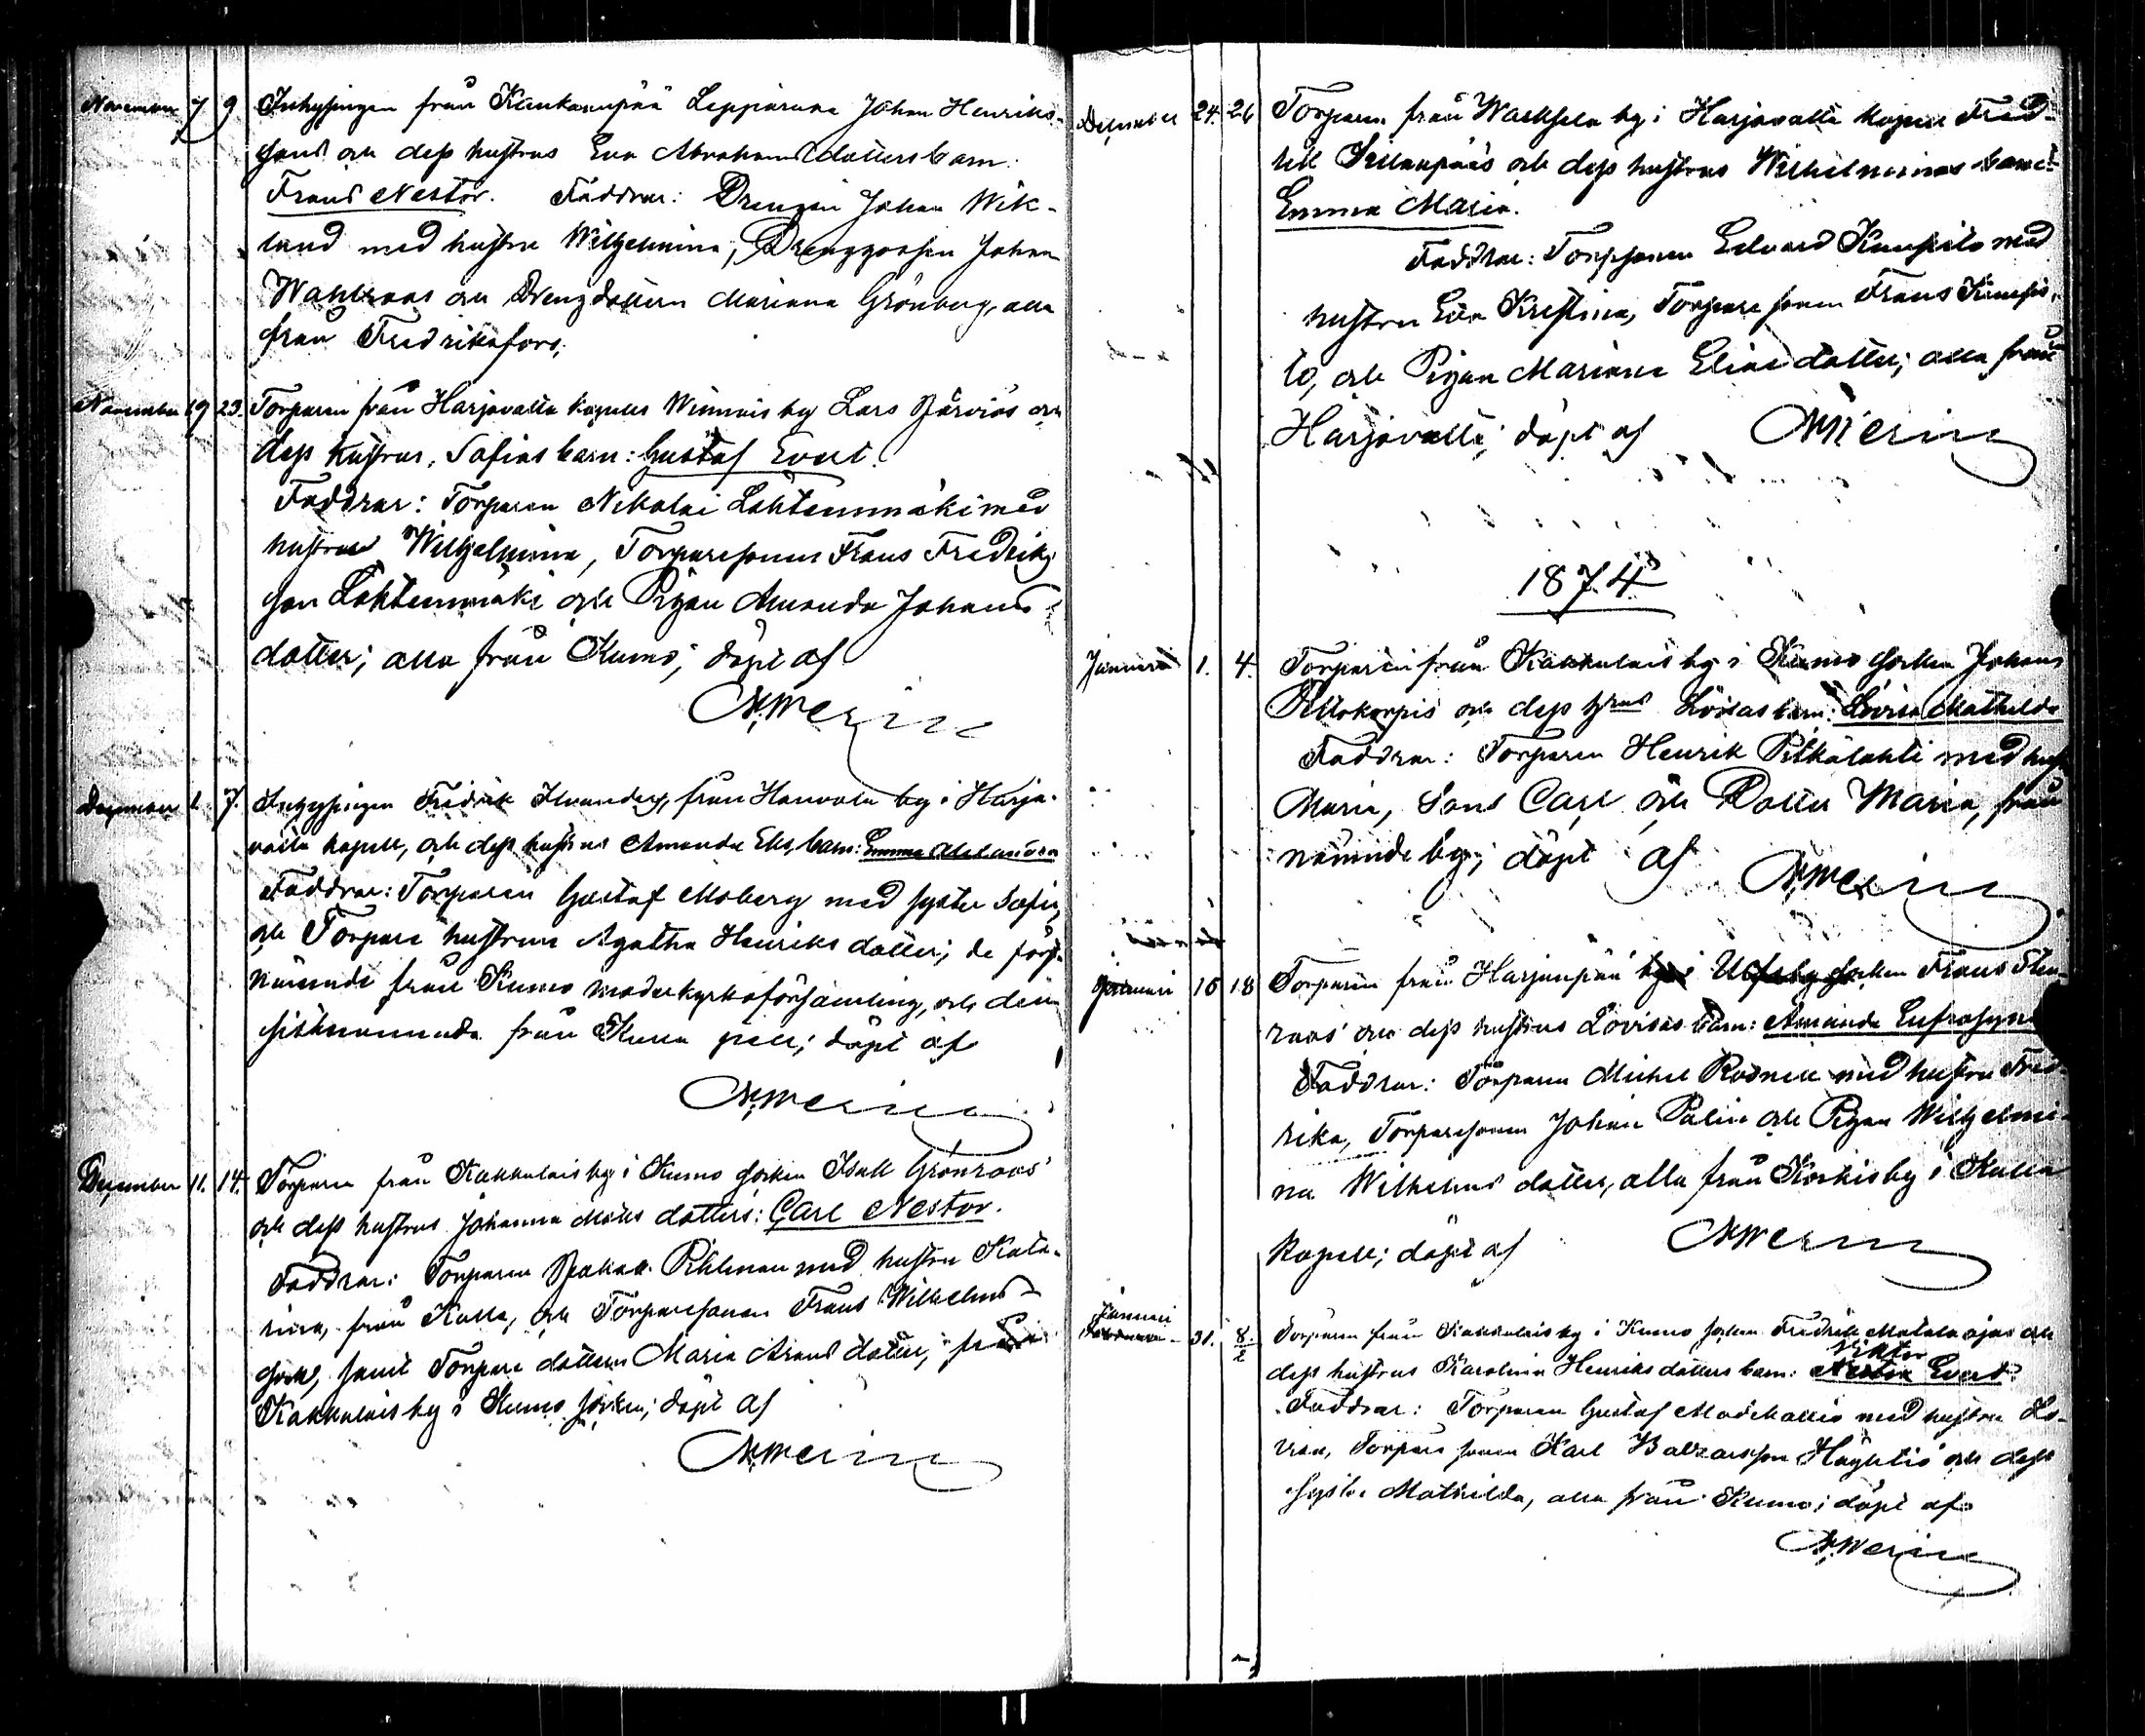 November 7 9 Inhysingen från Kankaanpää Leppäruna Johan Henriks-
sons och dess hustrus Eva Abrahamsdotters barn:
Frans Nestor. Faddrar: Drengen Johan Wik-
lund med hustru Wilhelmina, Drenggossen Johan
Wahlroos och Drengdottern Mariana Grönberg, alla
från Fredriksfors;
November 19 23. Torparen från Harjavalta kapells Winnais by Lars Järviös och
dess hustrus, Sofias barn: Gustaf Evert.
Faddrar: Torparen Nikolai Lähteenmäki med
hustru Wilhelmina, Torparesonen Frans Fredriks
son Lähteenmäki och Pigan Amanda Johans
dotter; alla från Kumo; döpt af
December 1. 7. Inhysingen Fredrik Ilmanders, från Hanvola by i Harja-
valta kapell, och dess hustrus Amanda Eks, barn: Emma Alexandra
Faddrar: Torparen Gustaf Moberg med syster Sofia,
och Torpare hustrun Agatha Henriks dotter; de först
nämnde från Kumo moderkyrkoförsamling, och den
sistnämnda från Kulla pell; döpt af
December 11. 14. Torparen från Kakkulais by i Kumo socken Isak Grönroos'
och dess hustrus Johanna Matts dotters: Carl Nestor.
Faddrar: Torparen Pihlman med hustru Kata-
rina, från Kulla, och Torparesonen Frans Wilhelms-
son, samt Torpare dottern Maria Arons dotter, från
Kakkulais by i Kumo socken; döpt af
December 24. 26 Torparen från Harjavalta kapell Fred-
rik och dess hustrus Wilhelminas barn:
Emma Maria.
Faddrar: Torparsonen Edvard Kunsito med
hustru Eva Kristina, Torpare sonen Frans Kunsi-
to, och Pigan Mariana Elias dotter; alla från
Harjavalta; döpt af
1874
Januari 1. 4. Torparen från Kakkulais by i Kumo socken Johans
och dess hrus Lovisas barn: Lovisa Mathilda
Faddrar: Torparen Henrik Pitkälahti med hust
Maria, Sons Carl och Dotter Maria, från
nämnde by; döpt af
Januari 16 18 Torparen från Harjunpää by i Ulfsby socken Frans Sten-
roos' och dess hustrus Lovisas barn: Amanda Eufrosyn
Faddrar: Torparen Michel Rosnell med hustru Fred-
rika, Torparesonen Johan Palin och Pigan Wilhelmi-
na Wilhelms dotter, alla från Koskis by i Kulla
kapell; döpt af
Januari
31. 8/2 Torparen från Kakkulais by i Kumo socken Fredrik Matalaojas och
Viktor
dess hustrus Karolina Henriks dotters barn: Nestor Evert
Faddrar: Torparen Gustaf Madekallio med hustru Lo-
visa, Torpare sonen Karl Balzarsson Häyhtiö och dess
syster Mathilda, alla från Kumo; döpt af